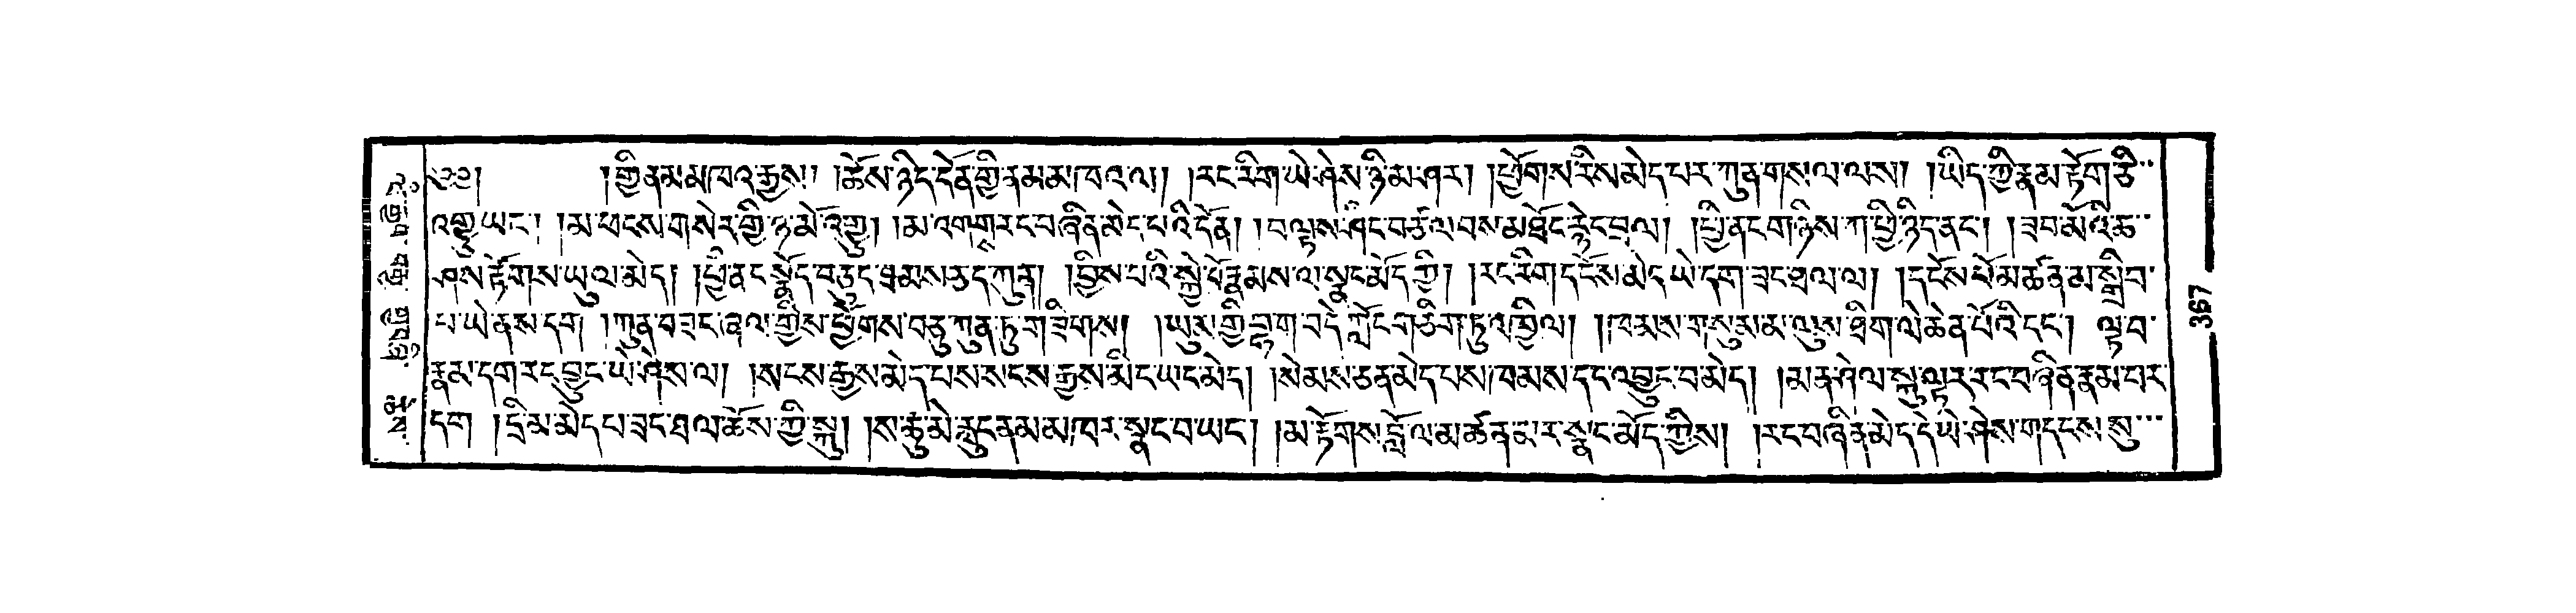 ༄༅། །གྱི་ནམ་མཁའ་རྒྱས། །ཆོས་ཉིད་དོན་གྱི་ནམ་མཁའ་ལ། །རང་རིག་ཡེ་ཤེས་ཉི་མ་ཤར། །ཕྱོགས་རིས་མེད་པར་ཀུན་གསལ་ལས། །ཡིད་ཀྱི་རྣམ་རྟོག་ཅི་
འགྱུ་ཡང་། །མ་ཕངས་གསེར་གྱི་ཉ་མོ་འགྱུ། །མ་འགགས་རང་བཞིན་མེད་པའི་དོན། །བལྟས་ཤིང་བཙལ་བས་མཐོང་རྙེད་བྲལ། །ཕྱི་ནང་གཉིས་ཀ་ཕྱི་ཉིད་ནང་། །ཟབ་མོའི་ཆ་
ཤས་རྟོགས་ཡུལ་མེད། །ཕྱི་ནང་སྣོད་བཅུད་ཁམས་རྒྱུད་ཀུན། །བྱིས་པའི་སྐྱེ་བོ་རྣམས་ལ་སྣང་མོད་ཀྱི། །རང་རིག་དངོས་མེད་ཡེ་དག་ཟང་ཐལ་ལ། །དངོས་པོ་མཚན་མ་སྒྲིབ་
པ་ཡེ་ནས་དག །ཀུན་བཟང་ཞལ་གྱིས་ཕྱོགས་བཅུ་ཀུན་ཏུ་གཟིགས། །ཡུམ་གྱི་བྷ་ག་བདེ་ཀློང་གཅིག་ཏུ་འཁྱིལ། །ཁམས་གསུམ་མ་ལུས་ཐིག་ལེ་ཆེན་པོའི་དང་། ལྟ་བ་
རྣམ་དག་རང་བྱུང་ཡེ་ཤེས་ལ། །སངས་རྒྱས་མེད་པས་སངས་རྒྱས་མིང་ཡང་མེད། །སེམས་ཅན་མེད་པས་ཁམས་དང་འབྱུང་བ་མེད། །མན་ཤེལ་སྐུ་ལྟར་རང་བཞིན་རྣམ་པར་
དག །དྲི་མ་མེད་པ་ཟང་ཐལ་ཆོས་ཀྱི་སྐུ། །ས་ཆུ་མེ་རླུང་ནམ་མཁར་སྣང་བ་ཡང་། །མ་རྟོགས་བློ་ལ་མཚན་མར་སྣང་མོད་ཀྱིས། །རང་བཞིན་མེད་དེ་ཡེ་ཤེས་གདངས་སུ་